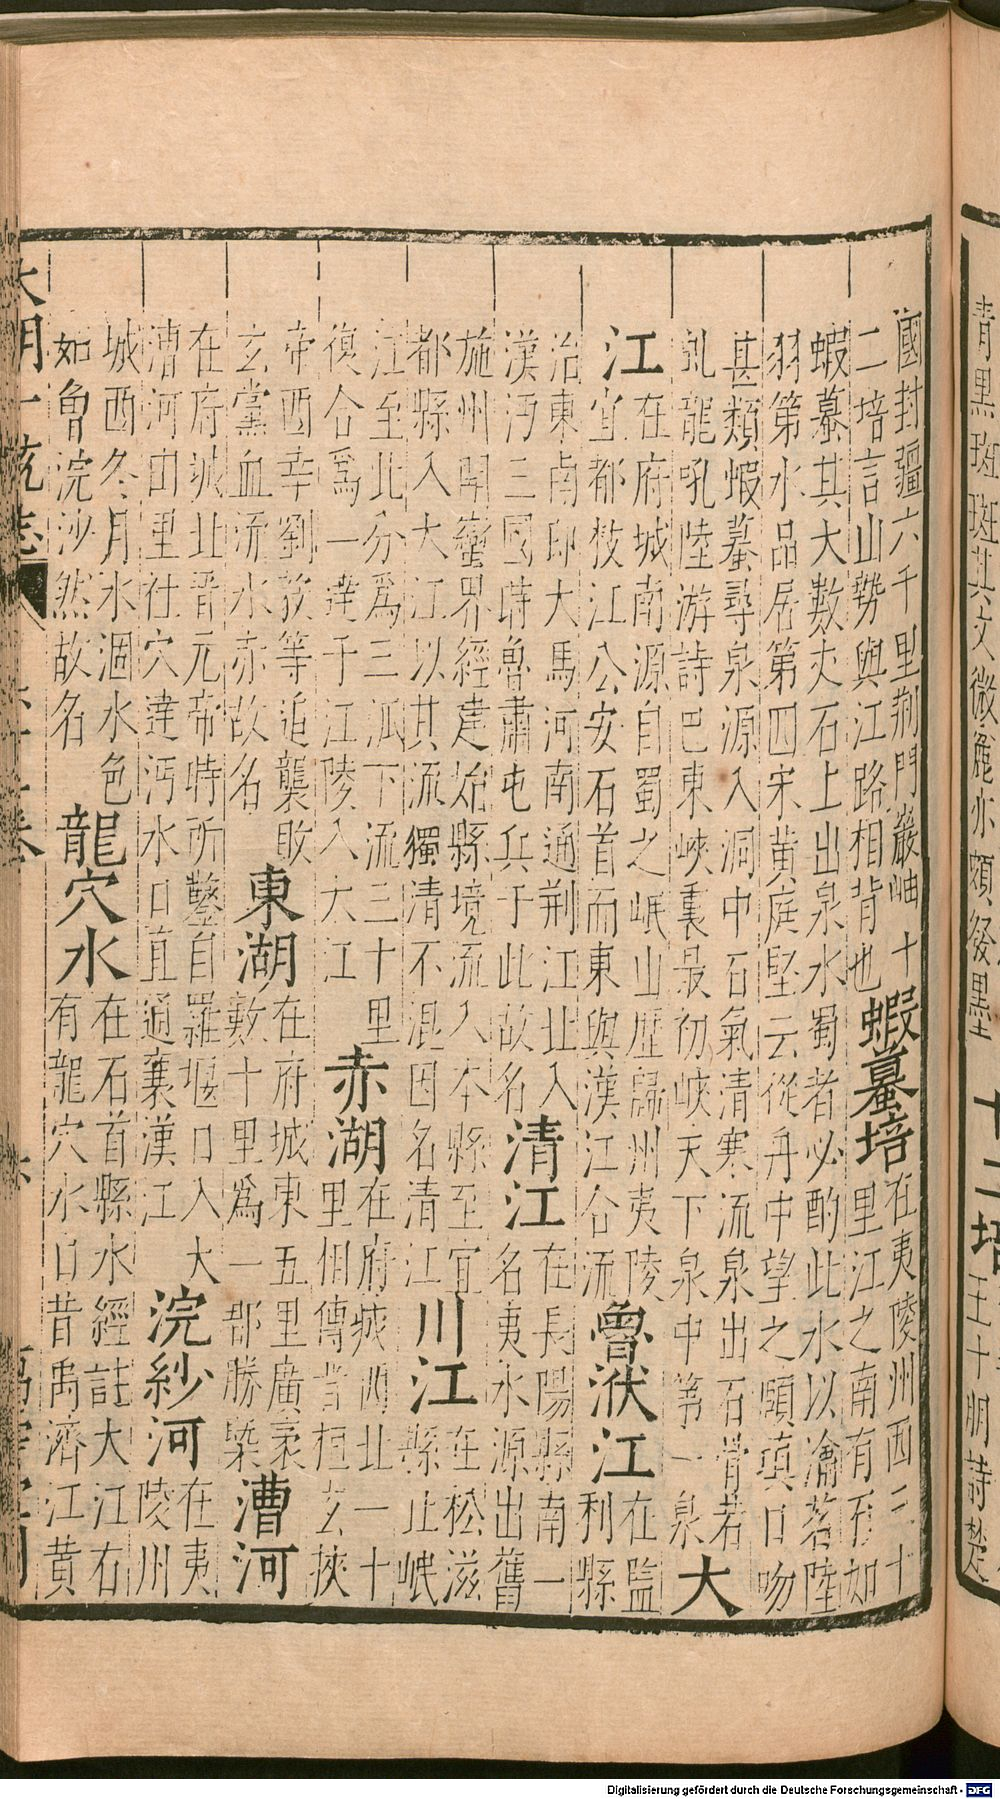 青黑斑斑其文微麄亦頗發墨 十二培 王十朋詩楚
國封疆六千里荊門巖岫十
二培言山勢與江路相背也
蝦蟇培
在夷陵州西三十
里江之南有石如
蝦蟇其大數丈石上出泉水蜀者必酌此水以瀹茗陸
羽第水品居第四宋黃庭堅云從舟中望之頤頷口吻
甚類蝦蟇尋泉源入洞中石氣清寒流泉出石骨若
虬龍吼陸游詩巴東峽裏最初峽天下泉中第一泉
大
江
在府城南源自蜀之岷山歷歸州夷陵
宜都枝江公安石首而東與漢江合流
魯洑江
在監
利縣
治東南即大馬河南通荊江北入
漢沔三國時魯肅屯兵于此故名
清江
在長陽縣南一
名夷水源出舊
施州開蠻界經建始縣境流入本縣至宜
都縣入大江以其流獨清不混因名清江
川江
在松滋
縣止岷
江至此分爲三派下流三十里
復合爲一達于江陵入大江
赤湖
在府城西北一十
里相傳昔桓玄挾
帝西幸劉毅等追襲敗
玄黨血流水赤故名
東湖
在府城東五里廣袤
數十里爲一郡勝槩
漕河
在府城北晉元帝時所鑿自羅堰口入大
漕河由里社穴達沔水口直通襄漢江
浣紗河
在夷
陵州
城西冬月水涸水色
如魯浣沙然故名
龍穴水
在石首縣水經註大江右
有龍穴水口昔禹濟江黃
大明一統志
Digitalisierung gefördert durch die Deutsche Forschungsgemeinschaft - DFG